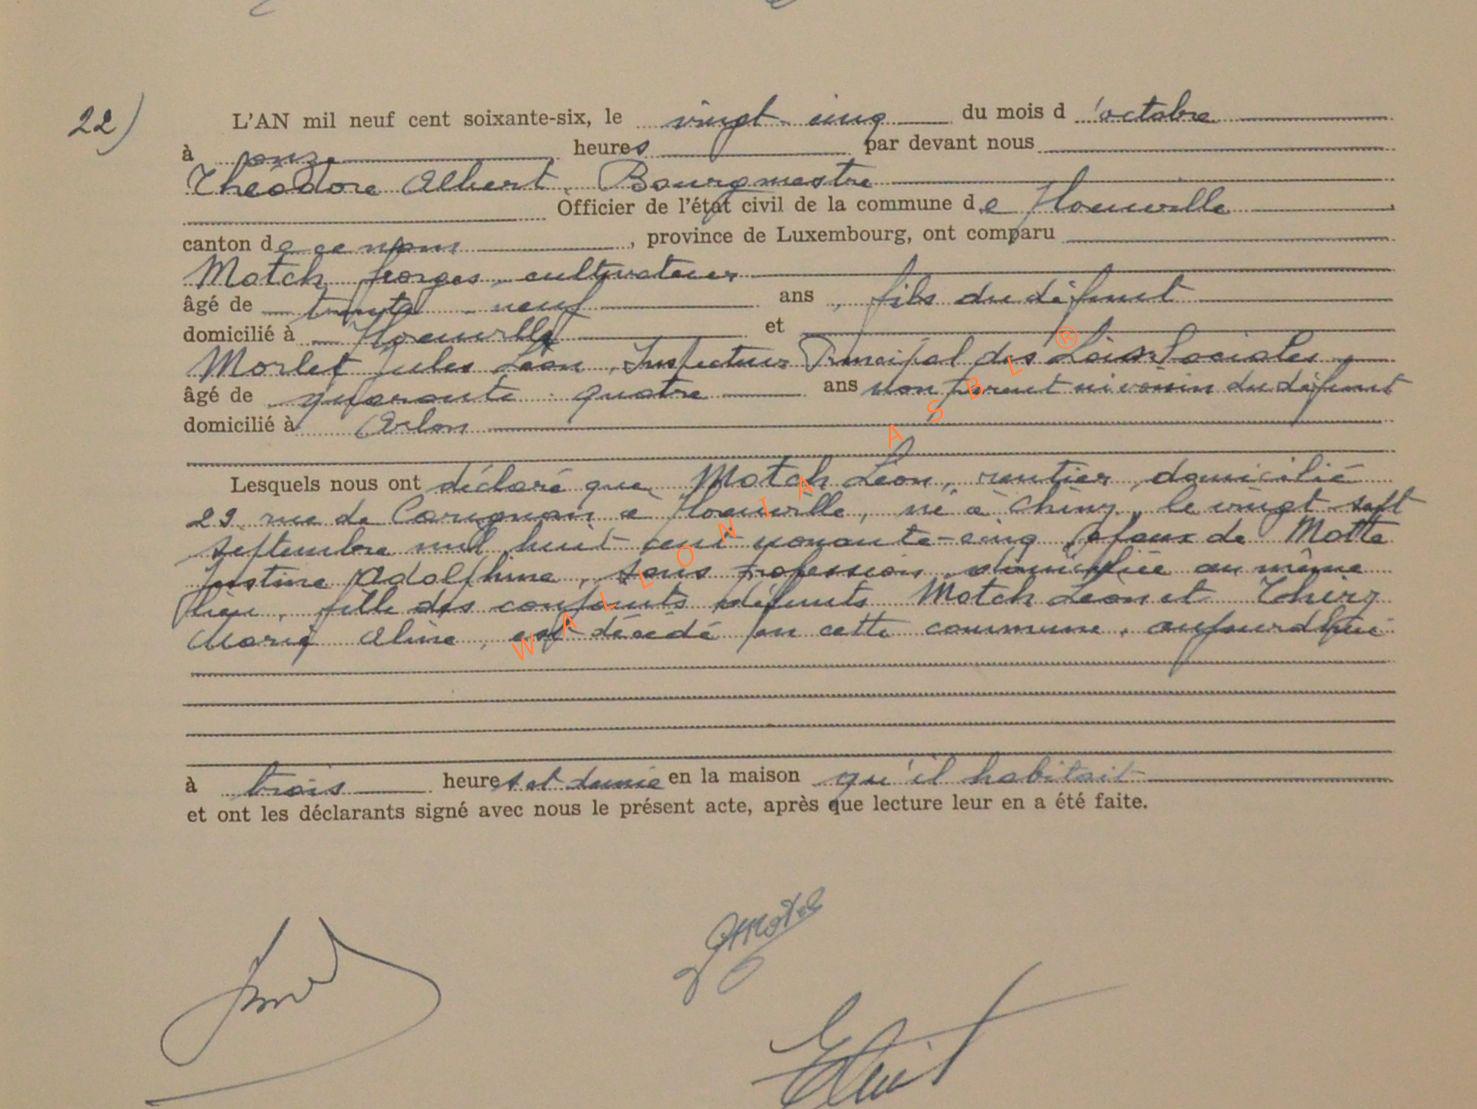 22)
L'AN mil neuf cent soixante-six, le vingt cinq du mois d 'octobre
à onze heures par devant nous
Théodore Albert, Bourgmestre
Officier de l'état civil de la commune de Florenville
canton de ce nom, province de Luxembourg, ont comparu
Motch Georges, cultivateur
âgé de trente neuf ans, fils du défunt
domicilié à Florenville et
Morlet Jules Léon, Inspecteur Principal des Lois Sociales,
âgé de quarante quatre ans non parent ni voisin du défunt
domicilié à Arlon
Lesquels nous ont déclaré que Motch Léon, rentier, domicilié
29 rue de Carignan à Florenville, né à Chiny, le vingt sept
septembre mil huit cent nonante-cinq époux de Motte
Justine Adolphine, sans profession, domiciliée au même
lieu, fille des conjoints défunts Motch Léon et Thiry
Marie Aline, est décédé en cette commune, aujourd'hui
à trois heures et demie en la maison qu'il habitait
et ont les déclarants signé avec nous le présent acte, après que lecture leur en a été faite.
WALLONIA ASBL ®